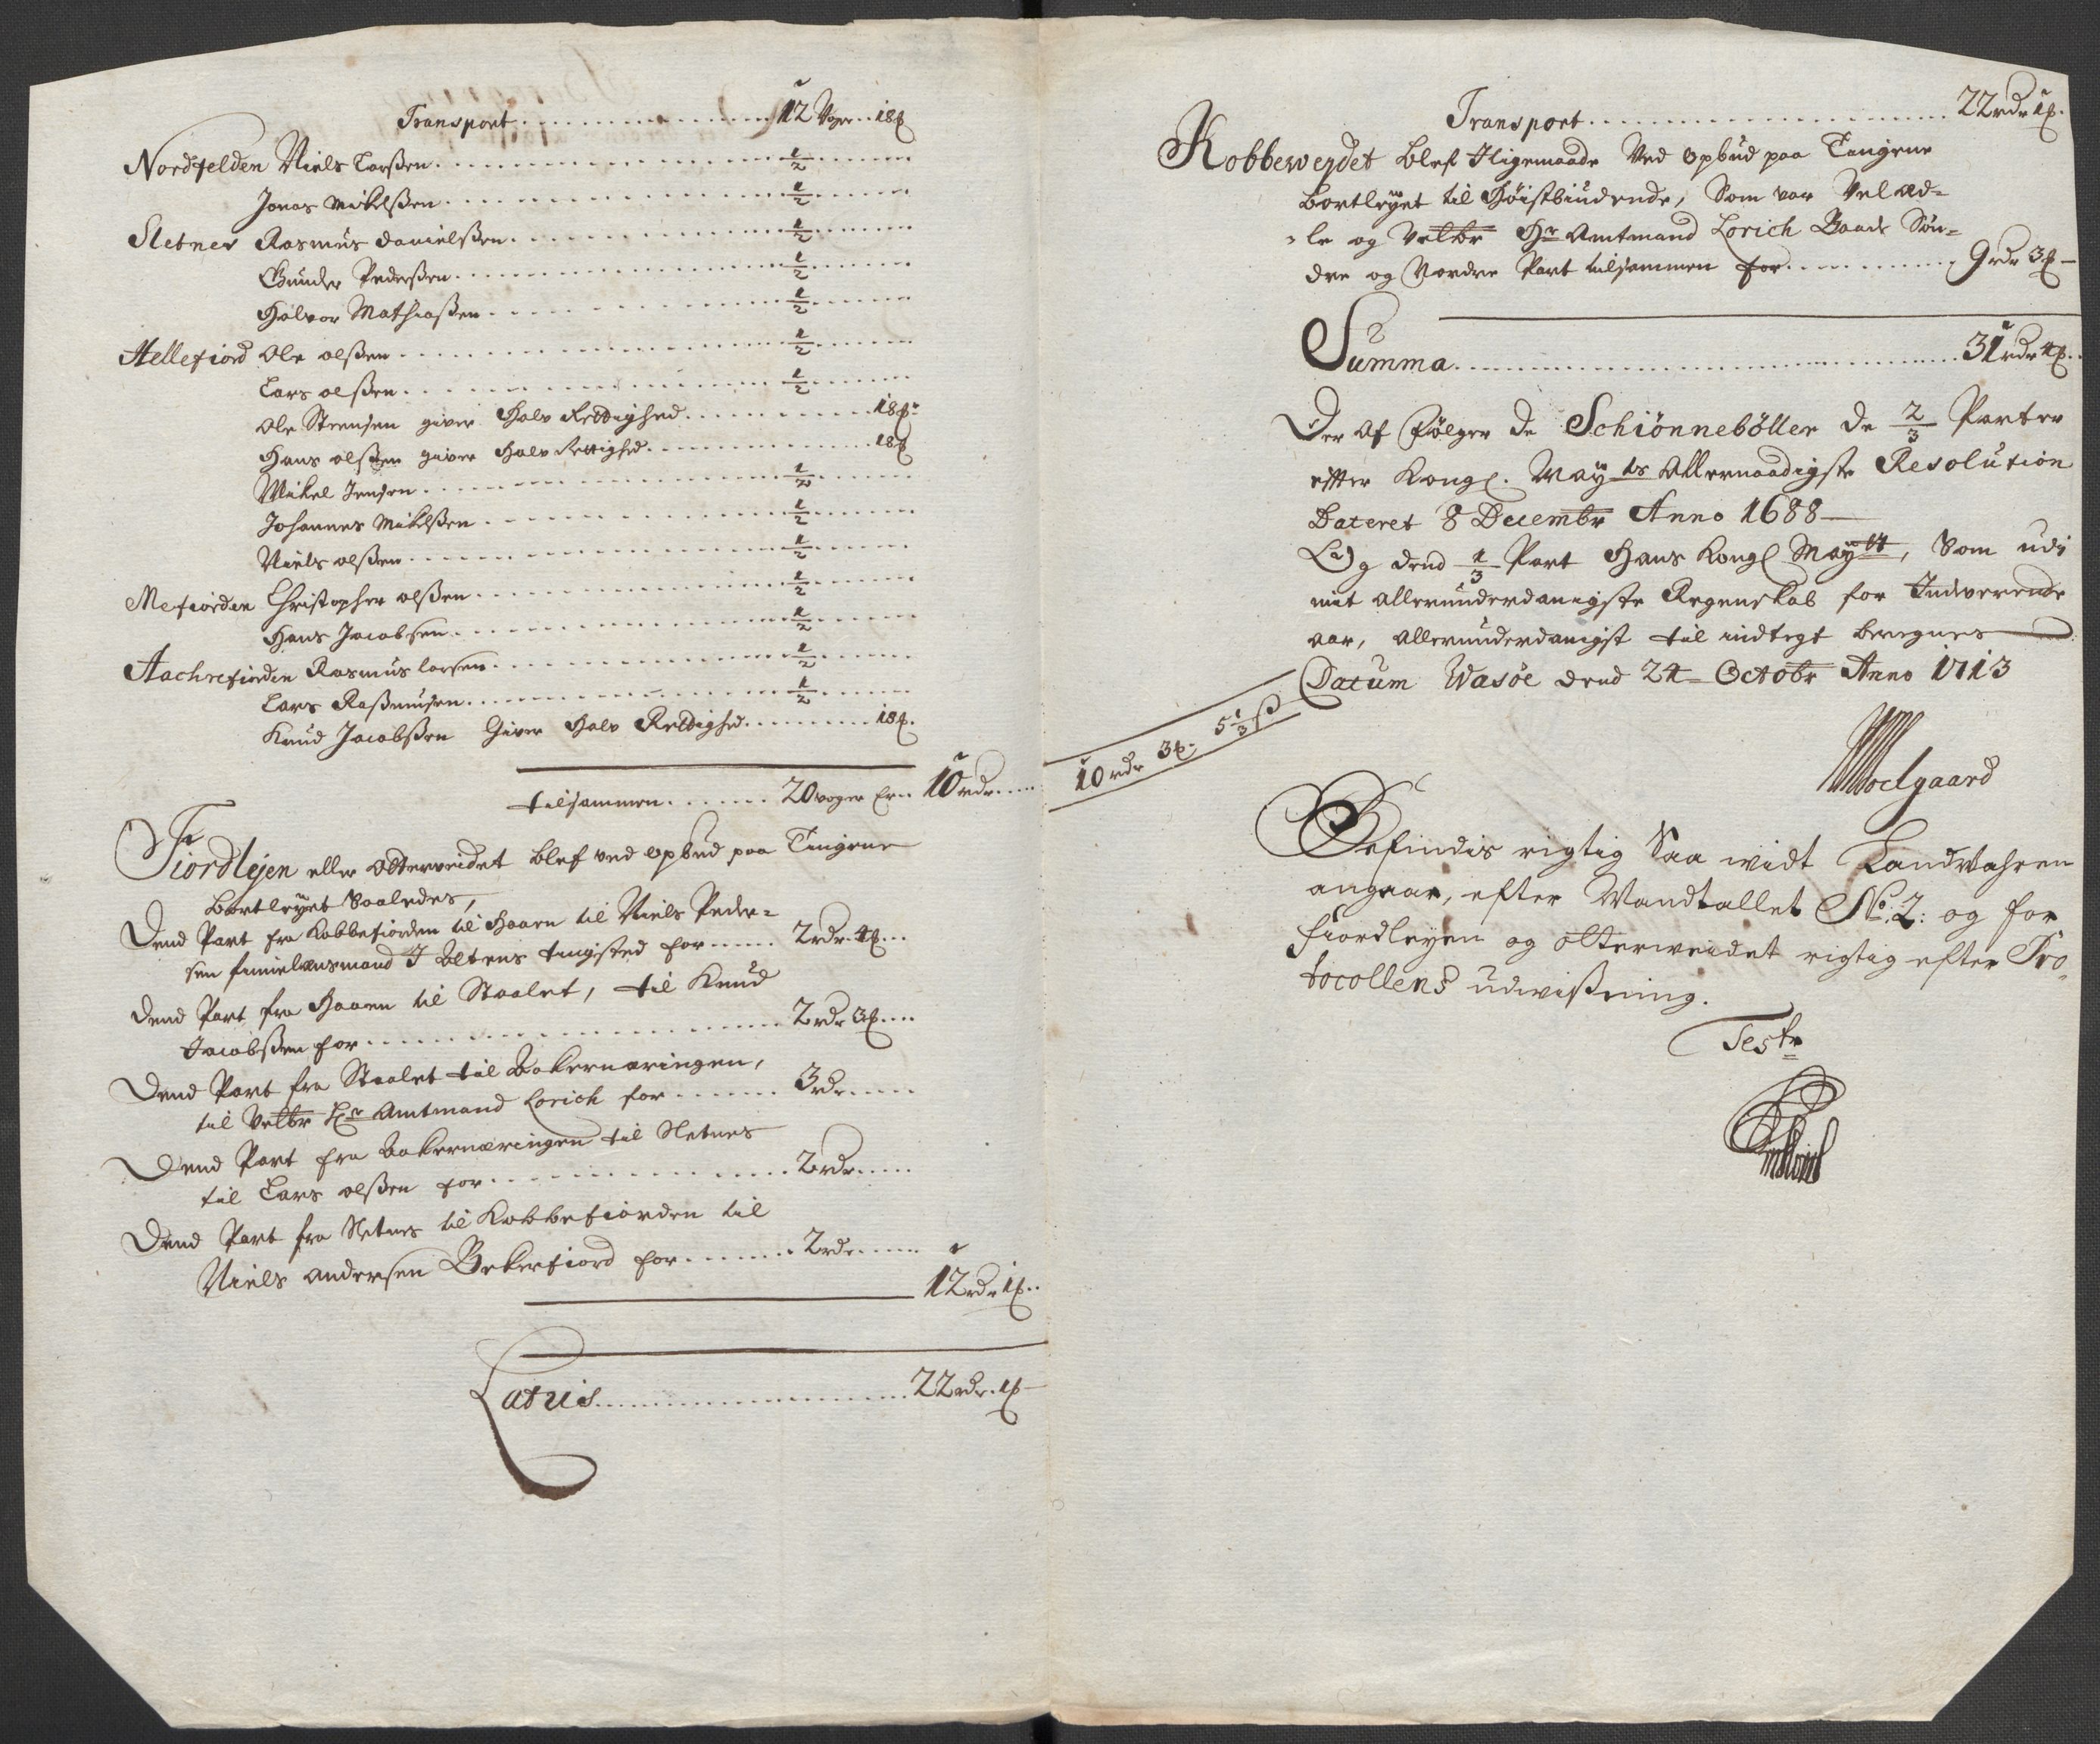 Transport . . . . . 12 Voger . . 18 ℔
Nordfelden Niels Larßen . . . . . ½ . . . . .
Jonas Mikelßen . . . . . ½ . . . . .
Sletnes Rasmus Danielßen . . . . . ½ . . . . .
Gunder Pederßen . . . . . ½ . . . . .
Halvor Mathiaßen . . . . . ½ . . . . .
Hellefiord Ole olßen . . . . . ½ . . . . .
Lars olßen . . . . . ½ . . . . .
Ole Steensen giver Halv Rettighed . . . . . 18 ℔
Hans olßen giver Halv Rettighed . . . . . 18 ℔
Mikel Jensen . . . . . ½ . . . . .
Johannes Mikelßen . . . . . ½ . . . . .
Niels olßen . . . . . ½ . . . . .
Mefiorden Christopher olßen . . . . . ½ . . . . .
Hans Jacobsen . . . . . ½ . . . . .
Aachrefiorden Rasmus larsen . . . . . ½ . . . . .
Lars Raßmusen . . . . . ½ . . . . .
Knud Jacobßen Giver Halv Rettighed . . . . . 18 ℔.
tilsammen . . . . . 20 voger Er . . 10 rdr . . . .
Fiordlejen eller Otterveidet blef ved opbud paa Tingene
bortleyet Saaledes,
Dend Part fra Kobbefiorden til Haaen til Niels Peder-
sen Lensmand I Oltens tingsted for . . . . 2 rdr. 4 ℔ . . .
Dend Part fra Haaen til Staalet, til Knud
Jacobßen for . . . . . 2 rdr 3 ℔ . . . .
Dend Part fra Staalet til Bakernæringen,
til Velbr Hr Amtmand Lorich for . . . . . 3 rdr . . . . .
Dend Part fra Bakernæringen til Sletnes
til Lars olßen for . . . . . 2 rdr . . . . .
Dend Part fra Sletnes til Kobbefiorden til
Niels Andersen Bekerfiord for . . . . . 2 rdr . . . . .
12 rdr 1 ℔ . .
Latus . . . . . 22 rdr. 1 ℔
Transport . . . . . 22 rdr 1 ℔.
Kobbeweydet blef Iligemaade Ved Opbud paa Tingene
bortleyet til Høistbiudende, Som var Vel Æd-
-le og Velbr Hr Amtmand Lorich Baade Søn-
dre og Nordre Part tilsammen for . . . . . 9 rdr 3 ℔
Summa . . . . . 31 rdr 4 ℔.
Der af Følger de Schiönnebøller de 2/3 Parter
efter Kongl. Mayts Allernaadigste Resolution
Dateret 8 Decembr Anno 1688
Og dend 1/3 Part Hans Kongl Maytt, Som udi
mit allerunderdanigste Regenskab for Indeverende
aar, allerunderdanigst til indtegt beregnes
10 rdr 3 ℔. 5 1/3 ß
Datum Wasöe dend 24 Octobr Anno 1713
Moelgaard
Befindis rigtig Saa widt Landvahren
angaar, efter Mandtallet No. 2: og for
Fiordleyen og Otterweidet rigtig efter Pro-
tocollens udwißning.
Teste